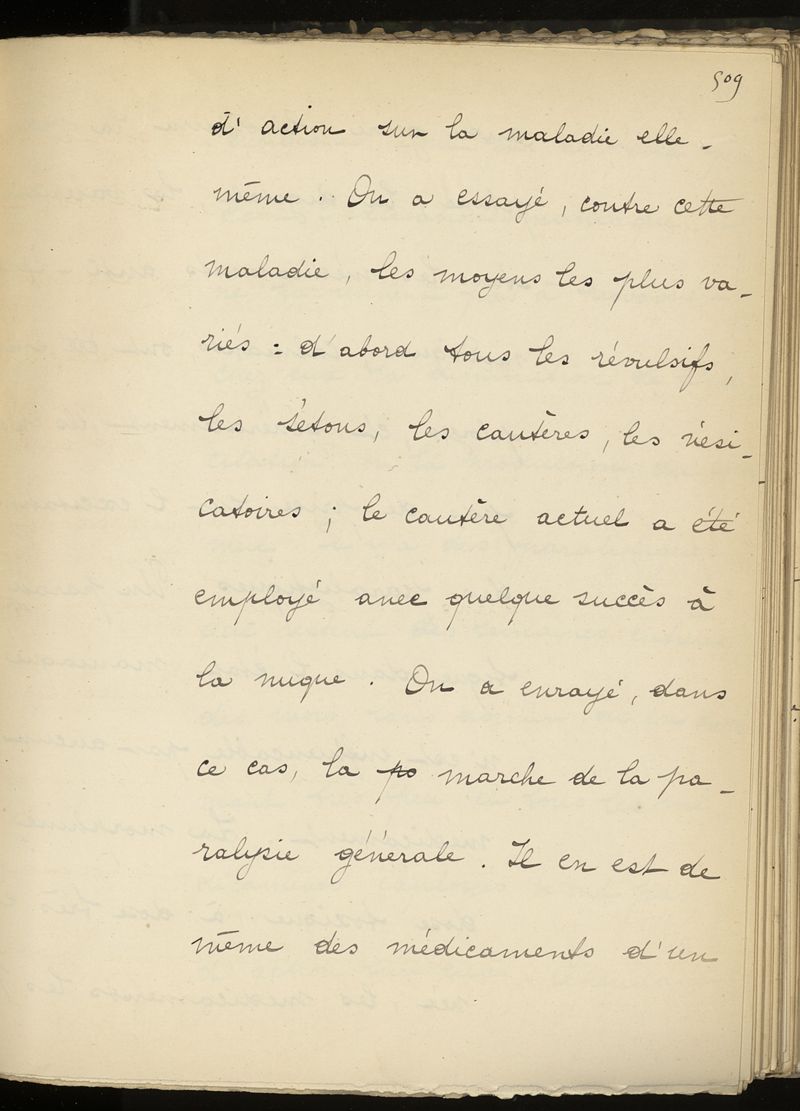 509
d'action sur la maladie elle-
même. On a essayé, contre cette
maladie, les moyens les plus va-
riés : d'abord tous les révulsifs,
les sétons, les cautères, les vési-
catoires ; le cautère actuel a été
employé avec quelque succès à
la nuque. On a enrayé, dans
ce cas, la po marche de la pa-
ralysie générale. Il en est de
même des médicaments d'un